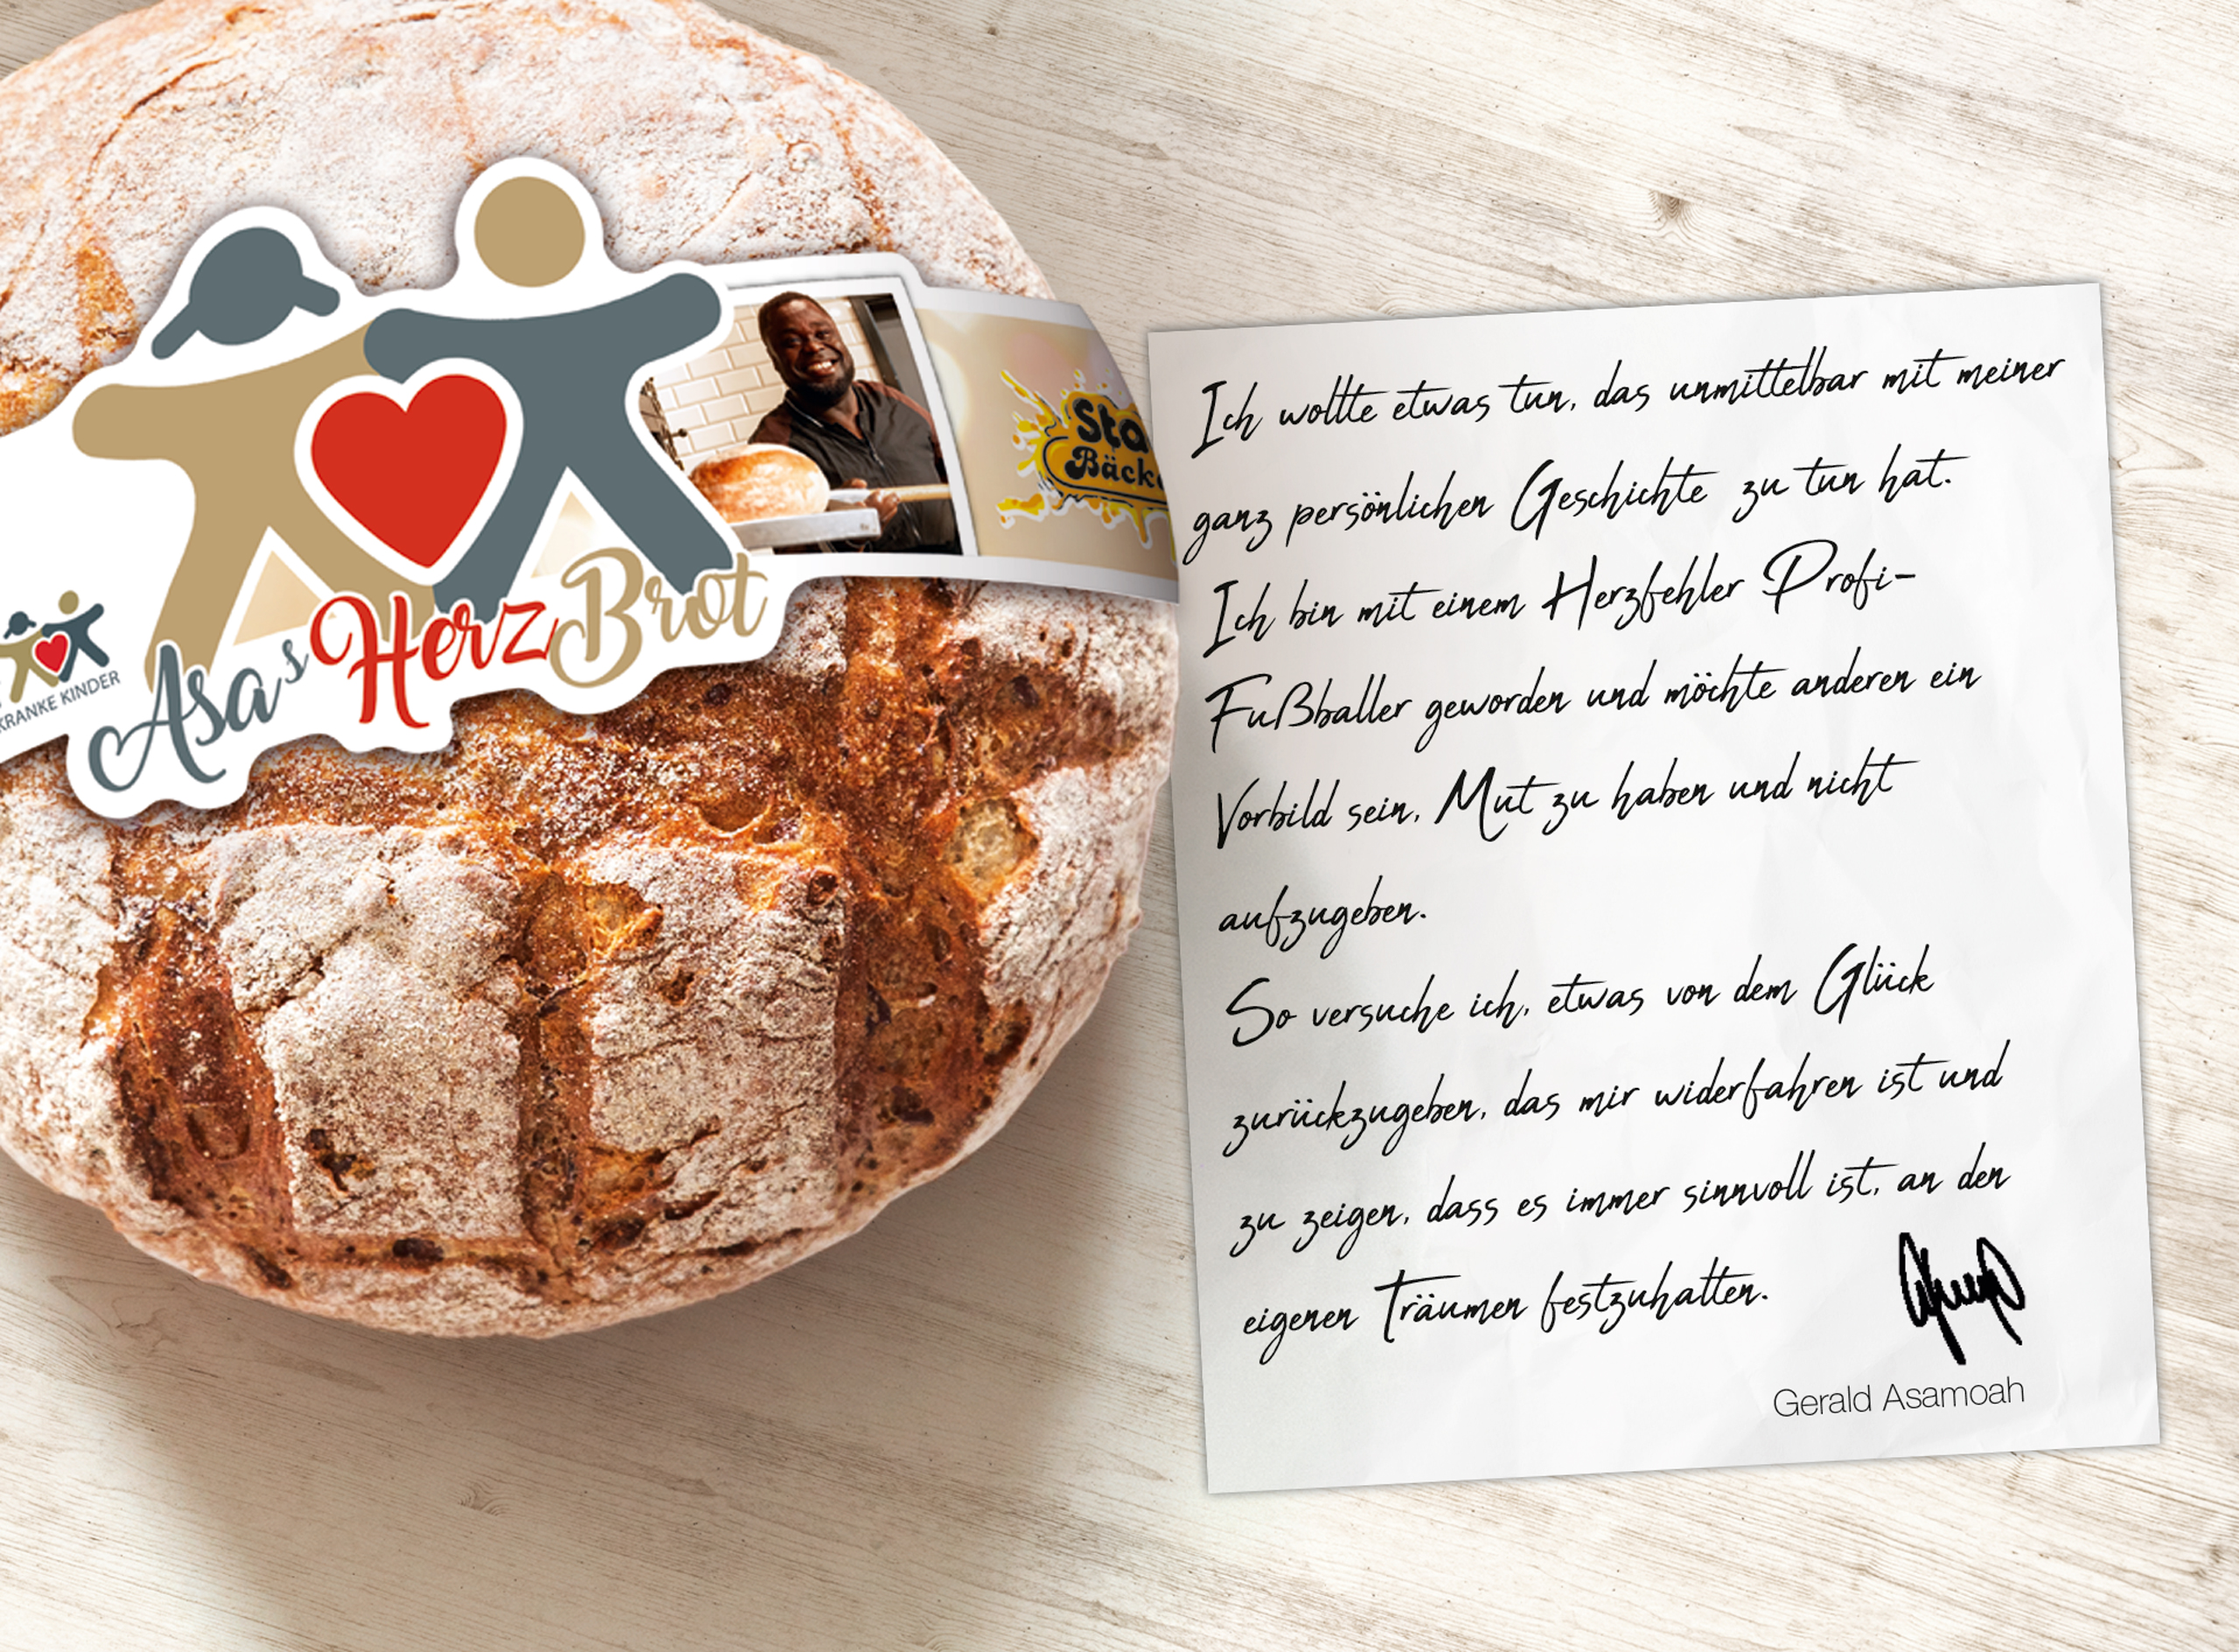 Asa's HerzBrot
KRANKE KINDER
Sta
Bäck
Ich wollte etwas tun, das unmittelbar mit meiner
ganz persönlichen Geschichte zu tun hat.
Ich bin mit einem Herzfehler Profi-
Fußballer geworden und möchte anderen ein
Vorbild sein, Mut zu haben und nicht
aufzugeben.
So versuche ich, etwas von dem Glück
zurückzugeben, das mir widerfahren ist und
zu zeigen, dass es immer sinnvoll ist, an den
eigenen Träumen festzuhalten.
Gerald Asamoah